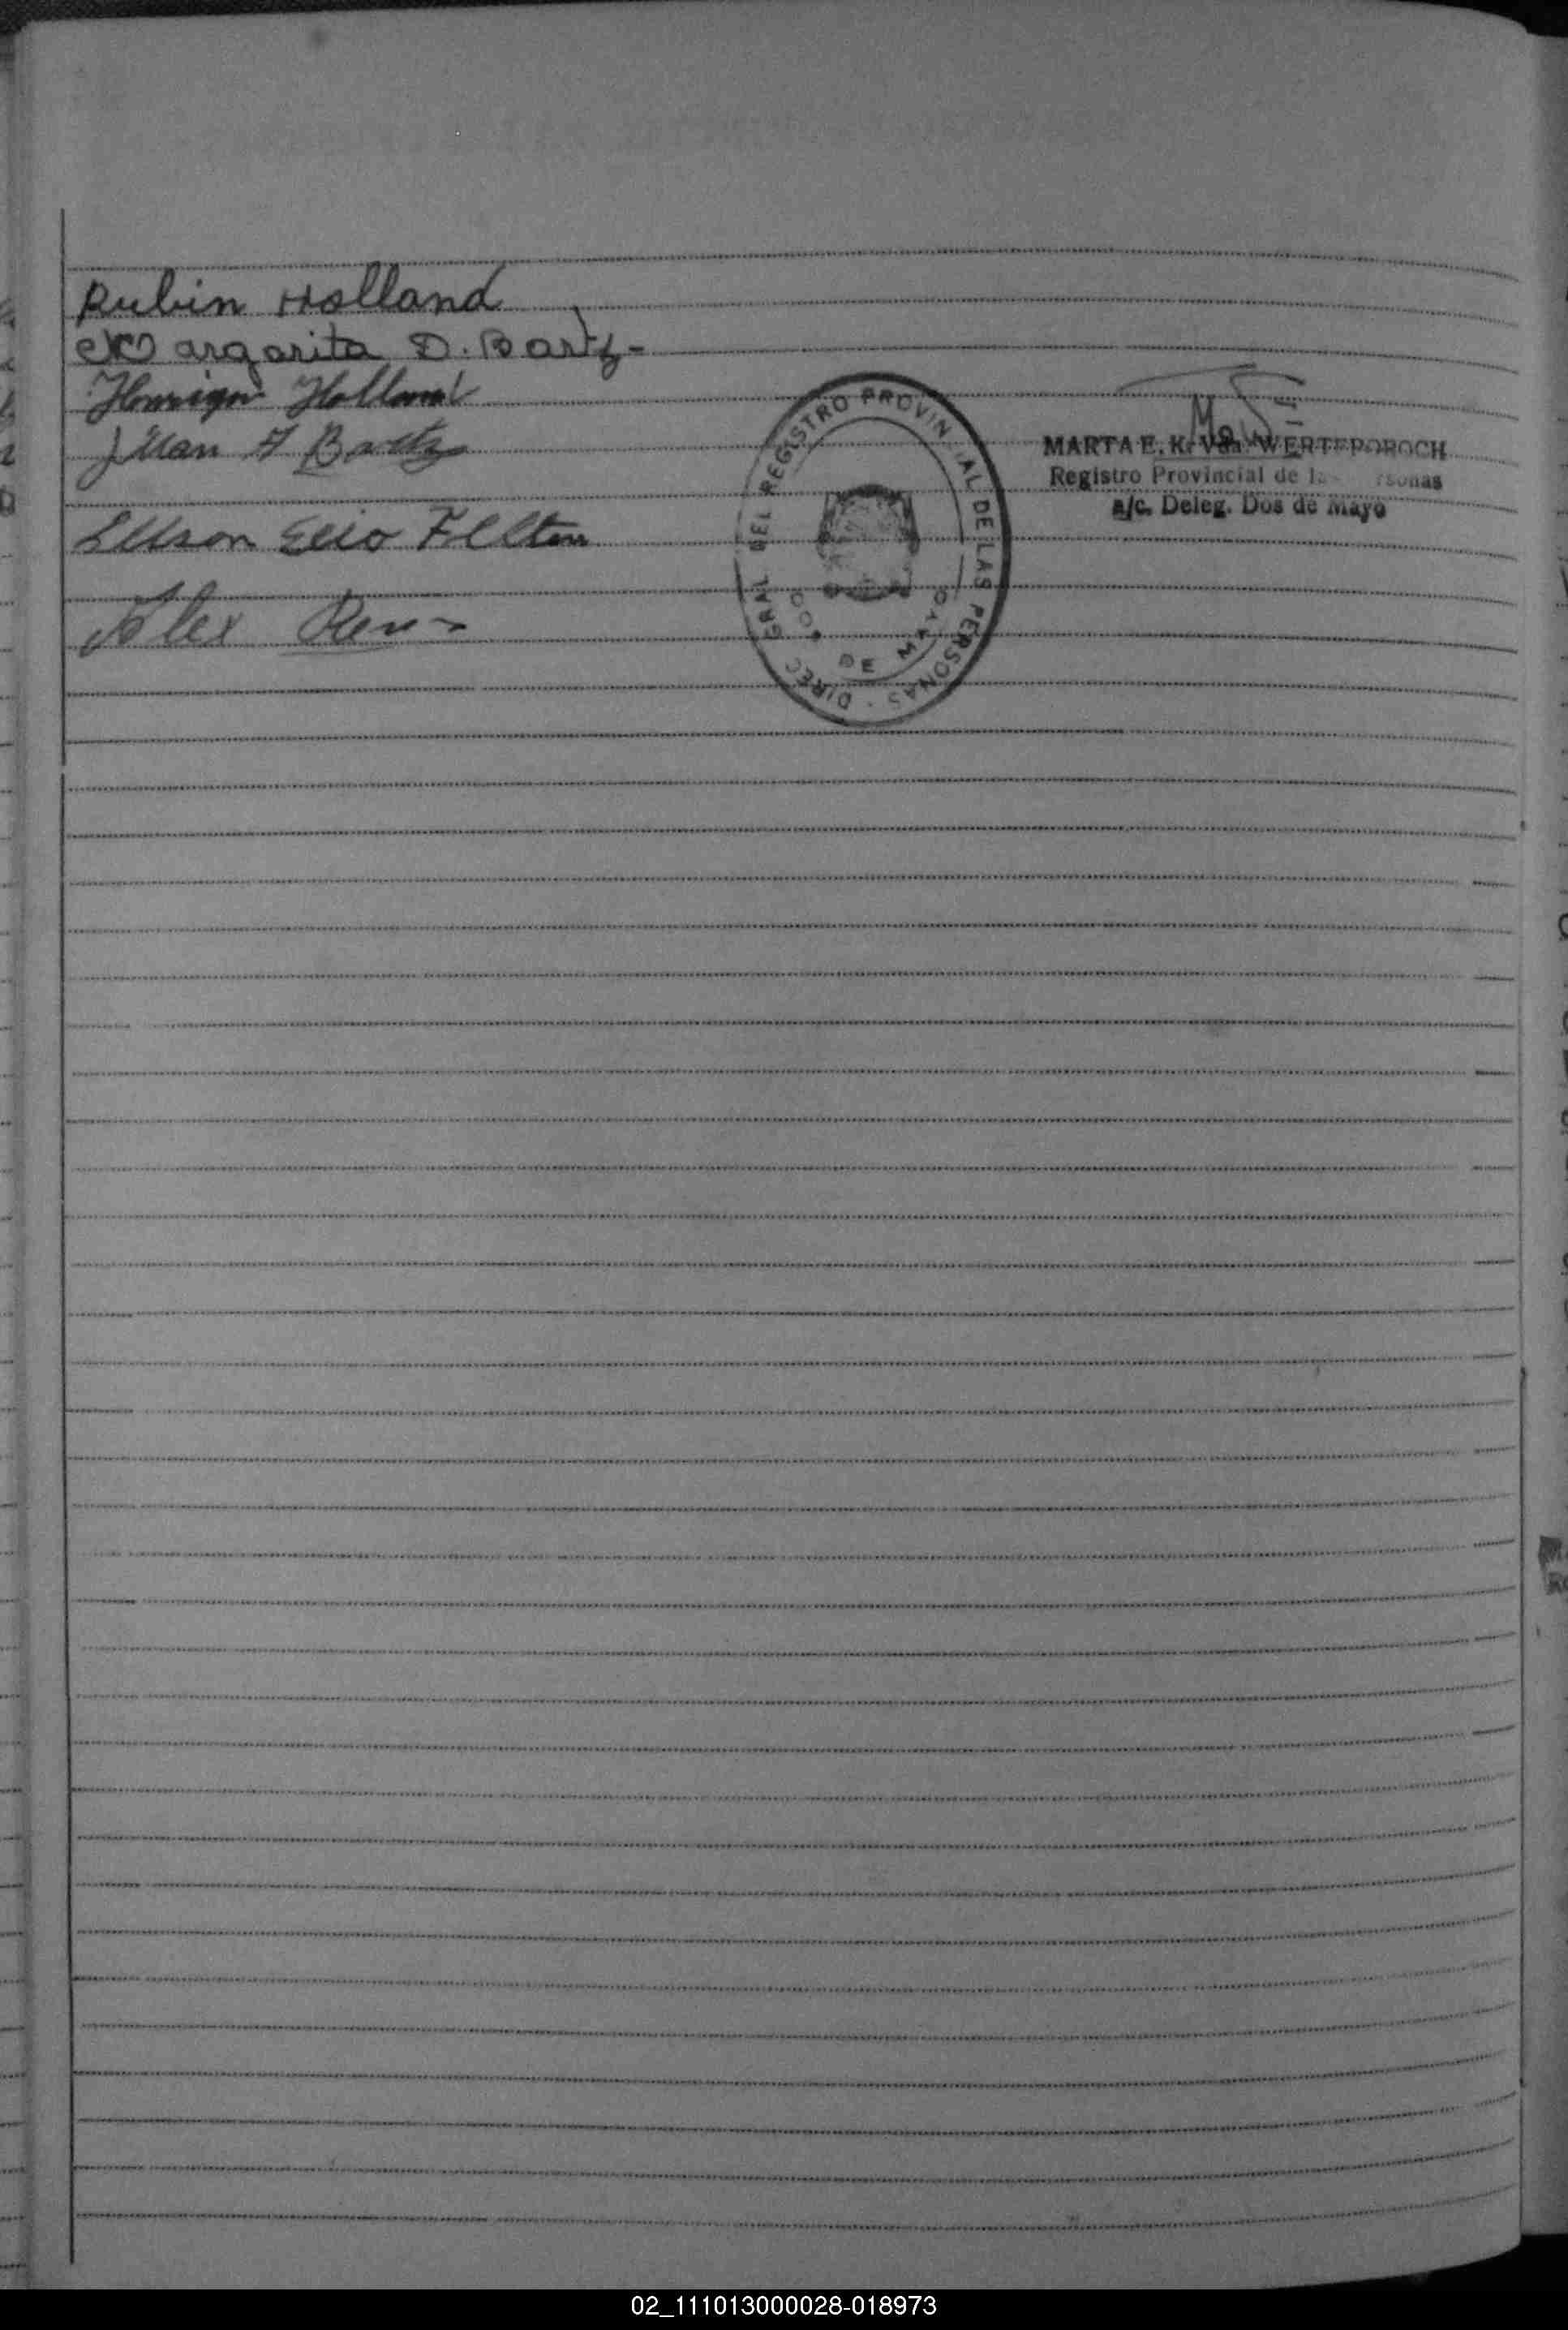 Rubin Holland
Margarita D. Bartz-
Henrique Holland
Juan A Bartz
Elio
Alex
DIREC GRAL DEL REGISTRO PROVINCIAL DE LAS PERSONAS -
DOS DE MAYO
MARTA E. K. Von WERTEPOROCH
Registro Provincial de las rsonas
a/c. Deleg. Dos de Mayo
02_111013000028-018973